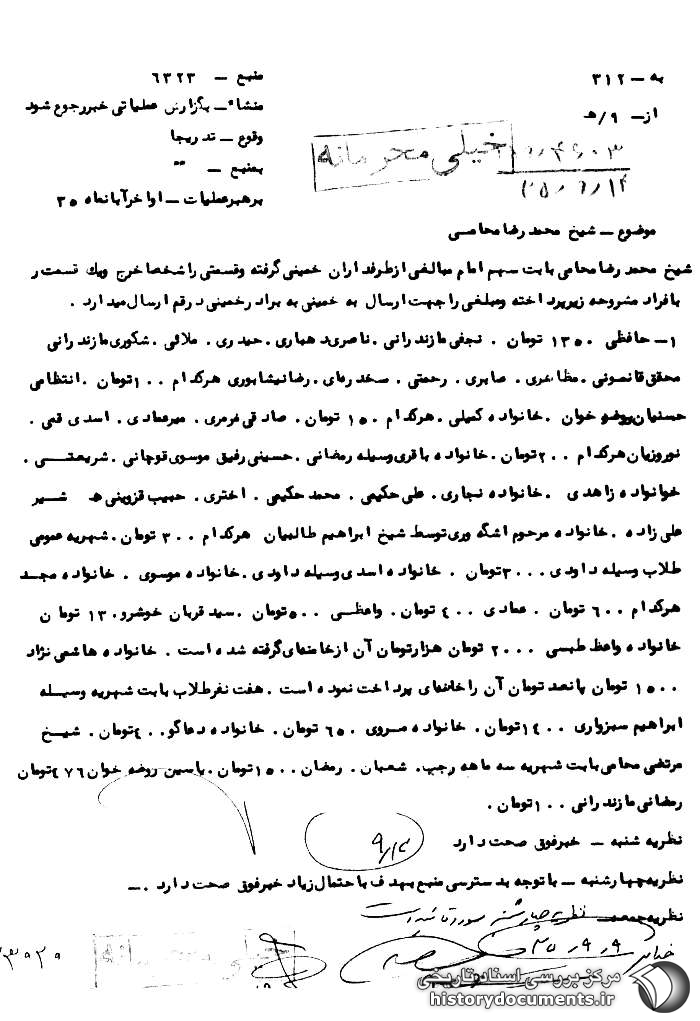 به – ۳۱۲
از – ۹/ه
منبع – ۶۳۲۳
منشاء – بگزارش عملیاتی خبر رجوع شود
وقوع – تدریجا
بمنبع – ""
برهبر عملیات – اواخر آبانماه ۳۵
خیلی محرمانه
موضوع – شیخ محمد رضا محامی
شیخ محمد رضا محامی بابت سهم امام مبالغی از طرفداران خمینی گرفته وقسمتی را شخصا خرج ویك قسمت را
بافراد مشروحه زیر پرداخته ومبلغی را جهت ارسال به خمینی به برادر خمینی در قم ارسال میدارد .
۱– حافظی ۱۳۵۰ تومان . نجفی مازندرانی . ناصری دهباری . حیدری . ملاقی . شکوری مازندرانی
محقق قانصونی . مظاهری . صابری . رحمتی . سخدرهای . رضا نیشابوری هرکدام ۱۰۰ تومان . انتظامی
حسنیان روضه خوان . خانواده کمیلی . هرکدام ۱۵۰ تومان . صادقی فرمری . میرعمادی . اسدی قمی .
نوروزیان هرکدام ۲۰۰ تومان . خانواده باقری وسیله رمضانی . حسینی رفیق موسوی قوچانی . شریعتی .
خوانواده زاهدی . خانواده نجاری . علی حکیمی . محمد حکیمی . اختری . حبیب قزوینی ه شیر
علی زاده . خانواده مرحوم اشگه وری توسط شیخ ابراهیم طالبیان هرکدام ۳۰۰ تومان . شهریه عمومی
طلاب وسیله داودی ۳۰۰۰ تومان . خانواده اسدی وسیله داودی . خانواده موسوی . خانواده مجد
هرکدام ۶۰۰ تومان . عمادی ۴۰۰ تومان . واعظی ۵۰۰ تومان . سید قربان خوشرو ۱۳۰ تومان
خانواده واعظ طبسی ۲۰۰۰ تومان هزار تومان آن از خامنهای گرفته شده است . خانواده هاشمی نژاد
۱۵۰۰ تومان پانصد تومان آن را خامنهای پرداخت نموده است . هفت نفر طلاب بابت شهریه وسیله
ابراهیم سبزواری ۱۴۰۰ تومان . خانواده مروی ۶۵۰ تومان . خانواده دعاگو ۴۰۰ تومان . شیخ
مرتضی محامی بابت شهریه سه ماهه رجب . شعبان . رمضان ۱۵۰۰ تومان . یاسین روضه خوان ۴۷۶ تومان
رمضانی مازندرانی ۱۰۰ تومان .
نظریه شنبه – خبر فوق صحت دارد
۹/۱۲
نظریه چهارشنبه – با توجه بدسترسی منبع بهدف با حتمال زیاد خبر فوق صحت دارد .–
نظریه جمعه – نظریه چهارشنبه مورد تائید است
۳۵٫۹٫۹
خیلی محرمانه
مرکز بررسی اسناد تاریخی
historydocuments.ir